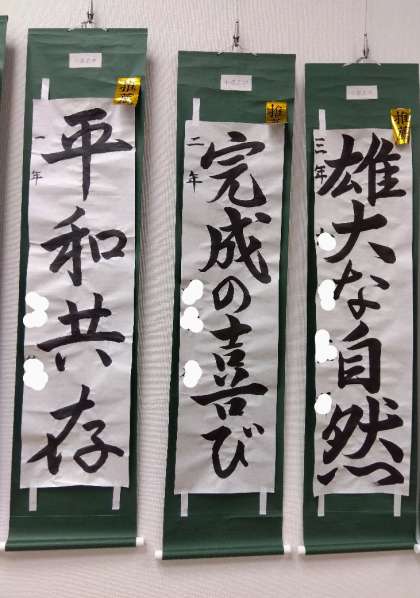 平和共存
一年
推薦
完成の喜び
二年
推薦
雄大な自然
三年
推薦